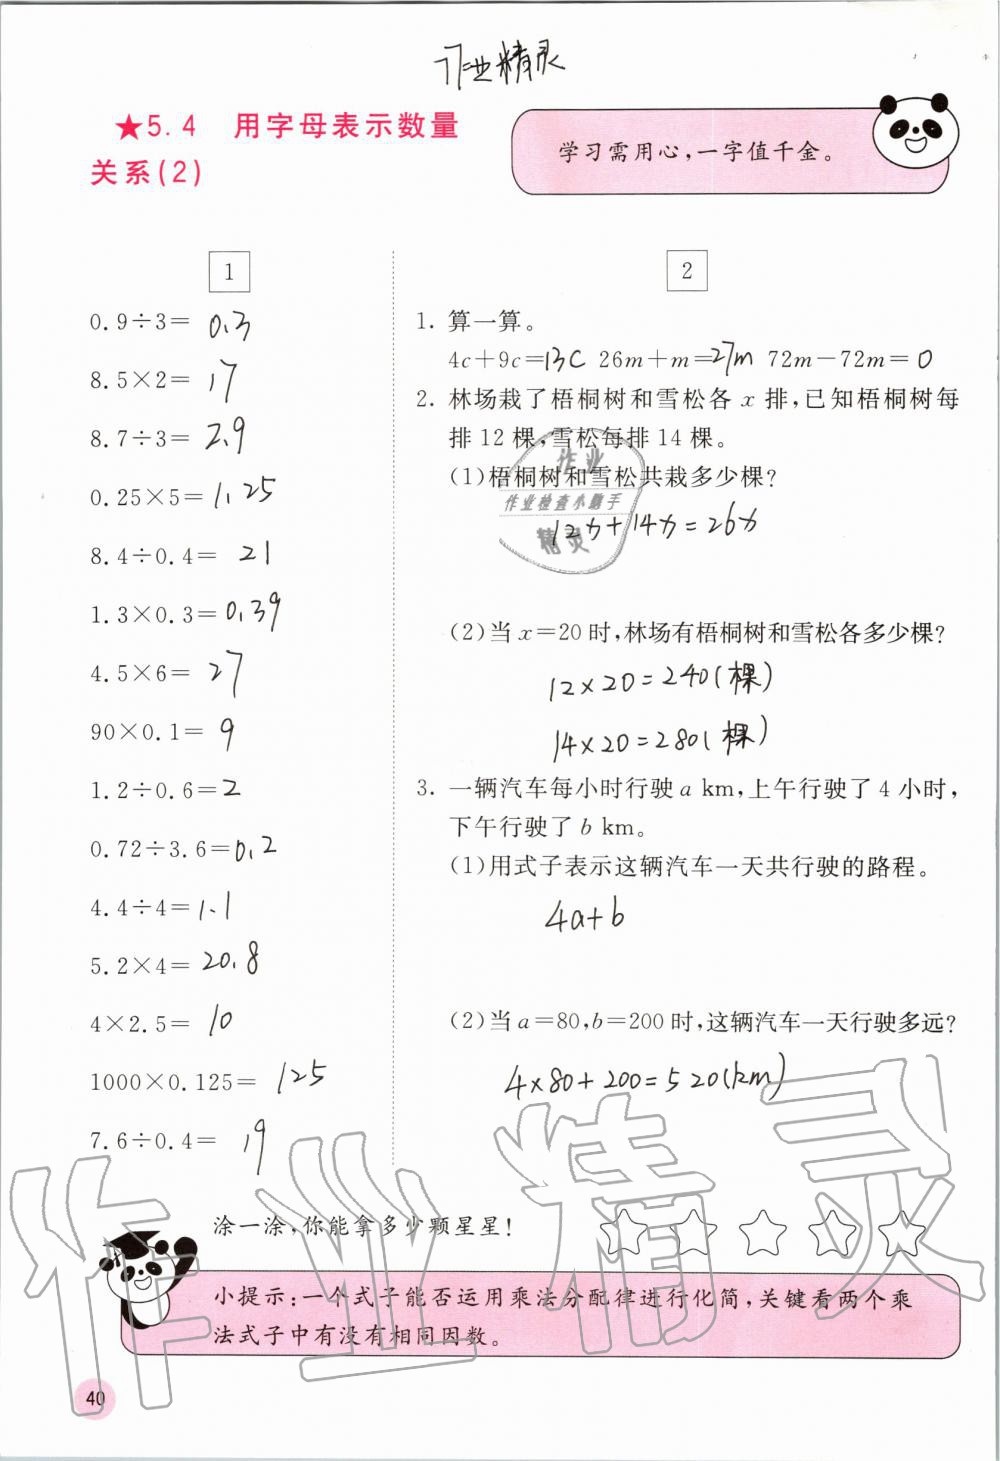 作业精灵
★5.4 用字母表示数量
关系(2)
学习需用心,一字值千金。
1
0.9÷3= 0.3
8.5×2= 17
8.7÷3= 2.9
0.25×5= 1.25
8.4÷0.4= 21
1.3×0.3= 0.39
4.5×6= 27
90×0.1= 9
1.2÷0.6= 2
0.72÷3.6= 0.2
4.4÷4= 1.1
5.2×4= 20.8
4×2.5= 10
1000×0.125= 125
7.6÷0.4= 19
2
1. 算一算。
4c+9c=13c 26m+m=27m 72m-72m=0
2. 林场栽了梧桐树和雪松各 x 排,已知梧桐树每
排 12 棵,雪松每排 14 棵。
(1)梧桐树和雪松共栽多少棵?
12x+14x=26x
作业
作业检查小助手
精灵
(2)当 x=20 时,林场有梧桐树和雪松各多少棵?
12×20=240(棵)
14×20=280(棵)
3. 一辆汽车每小时行驶 a km,上午行驶了 4 小时,
下午行驶了 b km。
(1)用式子表示这辆汽车一天共行驶的路程。
4a+b
(2)当 a=80,b=200 时,这辆汽车一天行驶多远?
4×80+200=520(km)
作业精灵
涂一涂,你能拿多少颗星星!
小提示:一个式子能否运用乘法分配律进行化简,关键看两个乘
法式子中有没有相同因数。
40